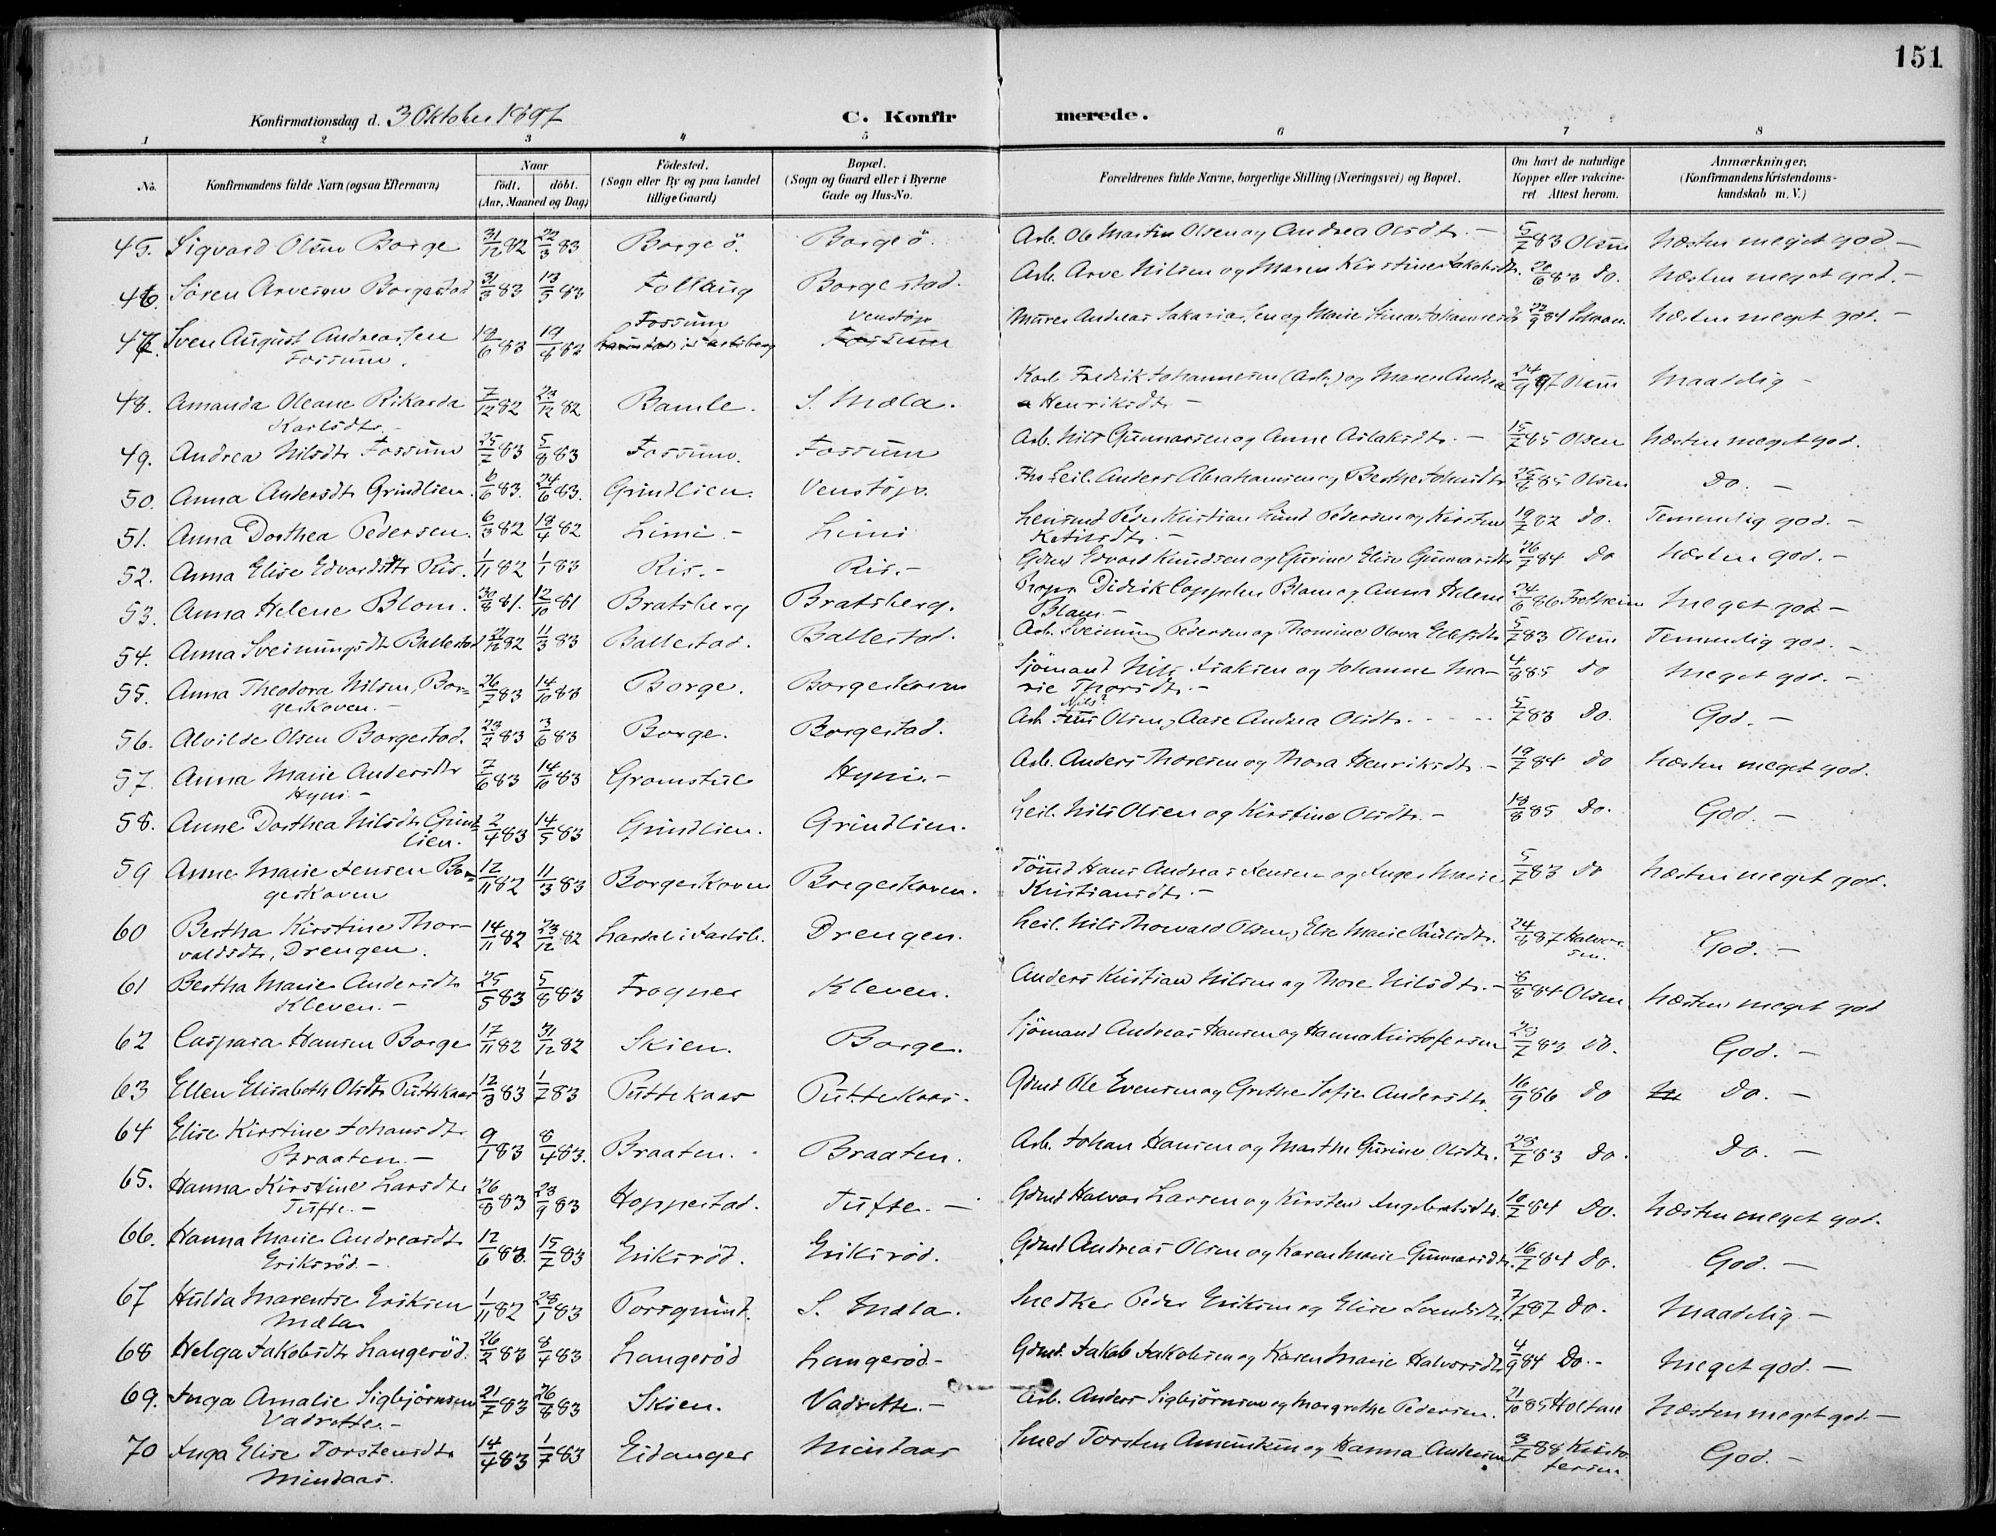 151
Konfirmationsdag d. 3 Oktober 1897
C. Konfirmerede.
1 2 3 4 5 6 7 8
No. Konfirmandens fulde Navn (ogsaa Efternavn) Naar født. døbt. (Aar, Maaned og Dag) Fødested. (Sogn eller By og paa Landet tillige Gaard) Bopæl. (Sogn og Gaard eller i Byerne Gade og Hus-No. Forældrenes fulde Navne, borgerlige Stilling (Næringsvei) og Bopæl. Om havt de naturlige Kopper eller vakcineret. Attest herom. Anmærkninger. (Konfirmandens Kristendomskundskab m. V.)
45. Sigvard Olsen Borge 31/12 82 22/3 83 Borge ö. Borge ö. Arb. Ole Martin Olsen og Andrea Olsdtr. — 5/7 83 Olsen Næsten meget god —
46. Søren Arvesen Borgestad 31/3 83 13/5 83 Follaug Borgestad. Arb. Arve Nilsen og Maren Kirstine Jakobsdtr. 20/6 83 Do. Næsten meget god. —
47. Sven August Andreassen Fossum. 12/6 83 19/8 83 Fossum Venstøp Fossum Murer Andreas Sakariassen og Marie Johannesd 22/9 84 Næsten meget god. —
48. Amanda Oleane Rikarda Karlsdtr. — 7/12 82 23/12 82 Bamle. S. Mæla. Karl Fredrik Johannesen (Arb.) og Maren Andrea Henriksdtr — 24/9 97 Olsen Maadelig —
49. Andrea Nilsdtr Fossum 25/2 83 5/8 83 Fossum. Fossum Arb. Nils Gunnarsen og Anne Aslaksdtr. — 15/7 85 Olsen Næsten meget god.
50. Anna Andersdtr Grindlien. 6/6 83. 24/6 83. Grindlien. Venstøp. Leil. Anders Abrahamsen og Berthe Johnsdtr 25/8 85 Olsen Do. —
51. Anna Dorthea Pedersen. 6/3 82 18/4 82 Limi — Limi Leusmd Peder Kristian Lund Pedersen og Kirsten Ketilsdtr. — 19/7 82 Do. Temmelig god. —
52. Anna Elise Edvardsdtr Ris. 1/11 82 1/1 83 Ris. — Ris. — Gdmd Edvard Knudsen og Gurine Elise Gunnarsdtr 26/7 84 Do Næsten god. —
53. Anna Helene Blom. 30/8 81. 12/10 81 Bratsberg Bratsberg. Propr Didrik Cappelen Blom og Anna Helene Blom. — 24/6 86 Fretheim Meget god —
54. Anna Sveinungsdtr Ballestad 21/12 82 11/3 83 Ballestad. Ballestad. Arb. Sveinung Pedersen og Thomine Olova Ellefsdtr 5/7 83 Olsen Temmelig god. —
55. Anna Theodora Nilsen, Borgeskoven. — 26/7 83 14/10 83 Borge. Borgeskoven Sjömand Nils Isaksen og Johanne Marie Thorsdtr. — 4/8 85 Do Meget god. —
56. Alvilde Olsen Borgestad. 23/2 83 3/6 83 Borge. Borgestad. Arb. Nils? Olsen, Aase Andrea Olsdtr. 5/7 83 Do. God. —
57. Anna Marie Andersdtr Hyni — 7/6 83 14/10 83 Gromstul Hyni. — Arb. Anders Thoresen og Thora Henriksdtr. — 19/7 84 Do Næsten meget god.
58. Anne Dorthea Nilsdtr Grindlien. 2/4 83 14/5 83 Grindlien. Grindlien. Leil. Nils Olsen og Kirstine Olsdtr. — 18/8 85 Do. God. —
59 Anne Marie Jensen Borgeskoven 12/11 82 11/3 83 Borgeskoven Borgeskoven. Tömmd Hans Andreas Jensen og Inger Marie Kristiansdtr. — 5/7 83 Do Næsten meget god.
60 Bertha Kirstine Thorvaldsdtr, Drengen. 14/11 82 23/12 82 Lardal i Jarlsb. Drengen. Leil. Nils Thorvald Olsen, Elise Marie Paulsdtr. 24/8 87 Halvorsen. God. —
61 Bertha Marie Andersdtr Kleven. — 25/5 83 5/8 83 Frogner Kleven. Anders Kristian Nilsen og Thore Nilsdtr. — 8/8 84 Olsen Næsten meget god
62 Caspara Hansen Borge 17/11 82 31/12 82 Skien. Borge. Sjömand Andreas Hansen og Hanna Kristofersen 25/7 83 Do. God. —
63 Ellen Elisabeth Olsdtr Puttekaas 12/3 83 1/7 83 Puttekaas Puttekaas. Gdmd Ole Evensen og Grethe Sofie Andersdtr. 16/9 86 Do Do. —
64 Elise Kirstine Johansdtr Braaten. — 9/1 83 8/4 83. Braaten. Braaten. Arb. Johan Hansen og Marthe Gurine Olsdtr. 25/7 83 Do. Do. —
65. Hanna Kirstine Larsdtr Tufte. — 26/8 83 23/9 83 Hoppestad. Tufte. — Gdmd Halvor Larsen og Kirsten Ingebretsdtr. 10/7 84 Do. Næsten meget god.
66. Hanna Marie Andreasdtr Eriksröd. — 12/6 83. 15/7 83 Eriksröd. Eriksröd. Gdmd Andreas Olsen og Karen Marie Gunnarsdtr. 16/7 84 Do. God. —
67 Hulda Marentse Eriksen Mæla 1/11 82 28/1 83 Porsgrund. S. Mæla. Snedker Peder Eriksen og Elise 7/7 87 Do. Maadelig —
68 Helga Jakobsdtr Langeröd. 26/2 83 8/4 83 Langeröd Langeröd — Gdmd. Jakob Jakobsen og Karen Marie Halvorsdtr 4/9 84 Do. — Meget god. —
69. Inga Amalie Sigbjørnsen Vadrette. — 21/7 83 26/8 83 Skien. Vadrette. — Arb. Anders Sigbjørnsen og Margrethe Pedersen. 21/10 85 Holtane Næsten meget god. —
70 Inga Elise Torstensdtr Mindaas. 14/4 83 1/7 83 Eidanger Mindaas Smed Torsten Amundsen og Hanna Andersen 3/7 88 Kristofersen God. —